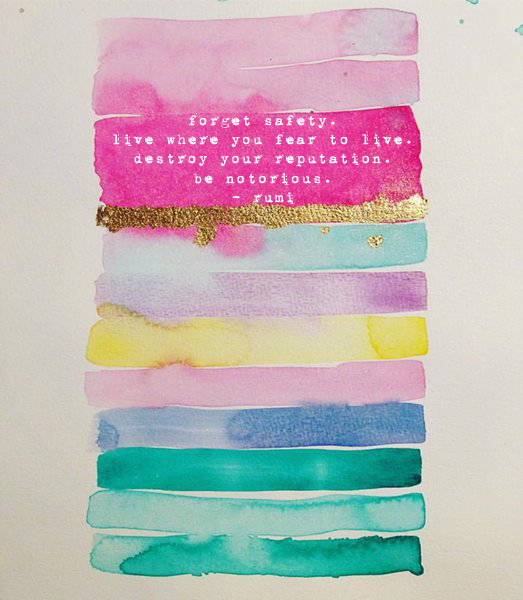 forget safety.
live where you fear to live.
destroy your reputation.
be notorious.
- rumi